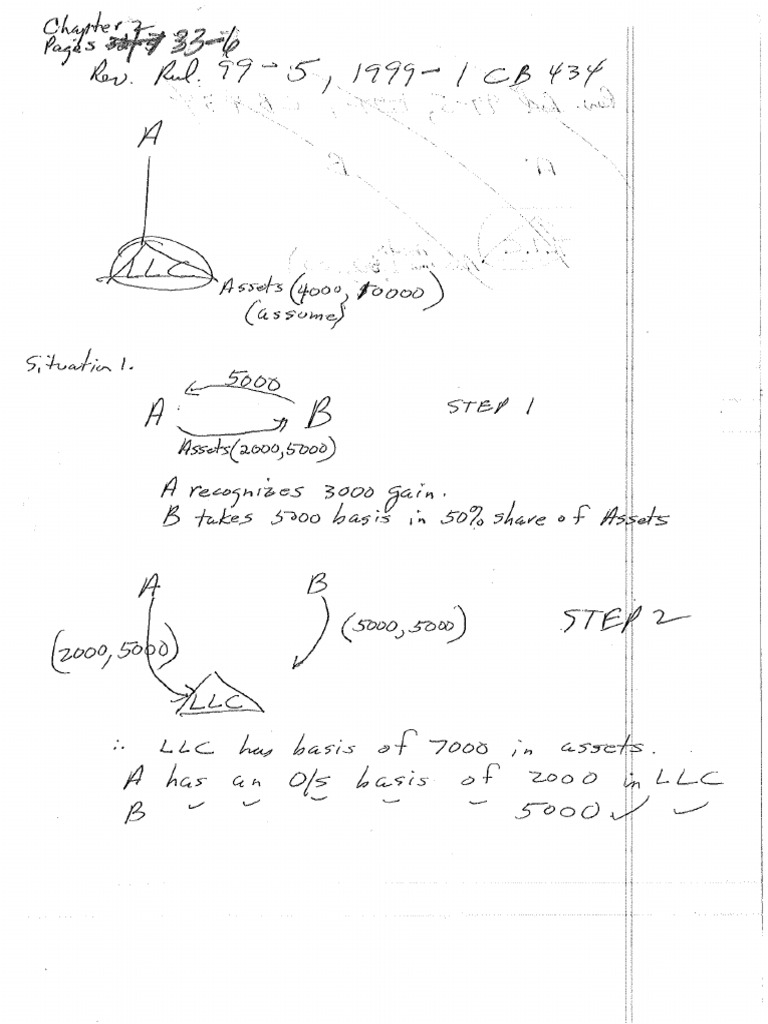 Chapter 2
Pages 33-6
Rev. Rul. 99-5, 1999-1 CB 434
A
LLC
Assets (4000, 10000)
(assume)
Situation 1.
5000
A B STEP 1
Assets (2000, 5000)
A recognizes 3000 gain.
B takes 5000 basis in 50% share of Assets
A B
(5000, 5000) STEP 2
(2000, 5000)
LLC
∴ LLC has basis of 7000 in assets.
A has an O/S basis of 2000 in LLC
B 〃 〃 〃 〃 〃 5000 〃 〃